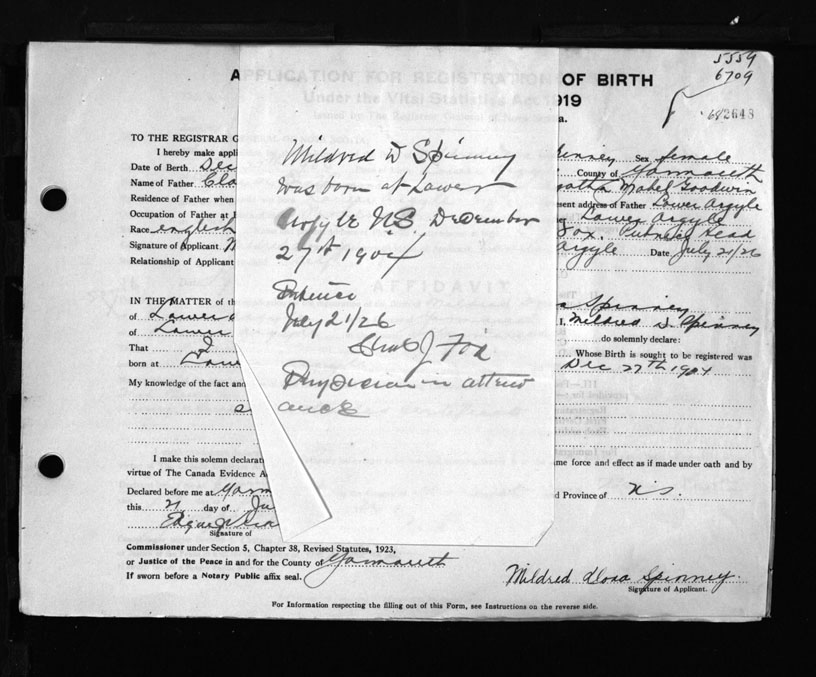 5559
6709
APPLICATION FOR REGISTRATION OF BIRTH
Under the Vital Statistics Act 1919
Issued by The Registrar General of Nova
2648
TO THE REGISTRAR G
I hereby make appli
Spinney Sex female
Date of Birth Dec
County of Yarmouth
Name of Father Cla
Mabel Goodwin
Residence of Father when
sent address of Father Lower Argyle
Occupation of Father at
Lower Argyle
Race english
Fox. Pubnico Head
Signature of Applicant. M
Argyle Date July 21/26
Relationship of Applicant
Mildred D Spinney
was born at Lower
Argyle N.S. December
27th 1904
Pubnico
July 21/26
Chas J. Fox
Physician in attend
ance
AFFIDAVIT
IN THE MATTER of th
a Spinney
of Lower
I, Mildred D. Spinney
of Lower
do solemnly declare:
That I
Whose Birth is sought to be registered was
born at Low
Dec 27th 1904
My knowledge of the fact and
I make this solemn declarati
me force and effect as if made under oath and by
virtue of The Canada Evidence A
Declared before me at Yarm
d Province of N.S.
this 21 day of Ju
Edgar
Signature of
Commissioner under Section 5, Chapter 38, Revised Statutes, 1923,
or Justice of the Peace in and for the County of Yarmouth
If sworn before a Notary Public affix seal.
Mildred Dora Spinney.
Signature of Applicant.
For Information respecting the filling out of this Form, see Instructions on the reverse side.